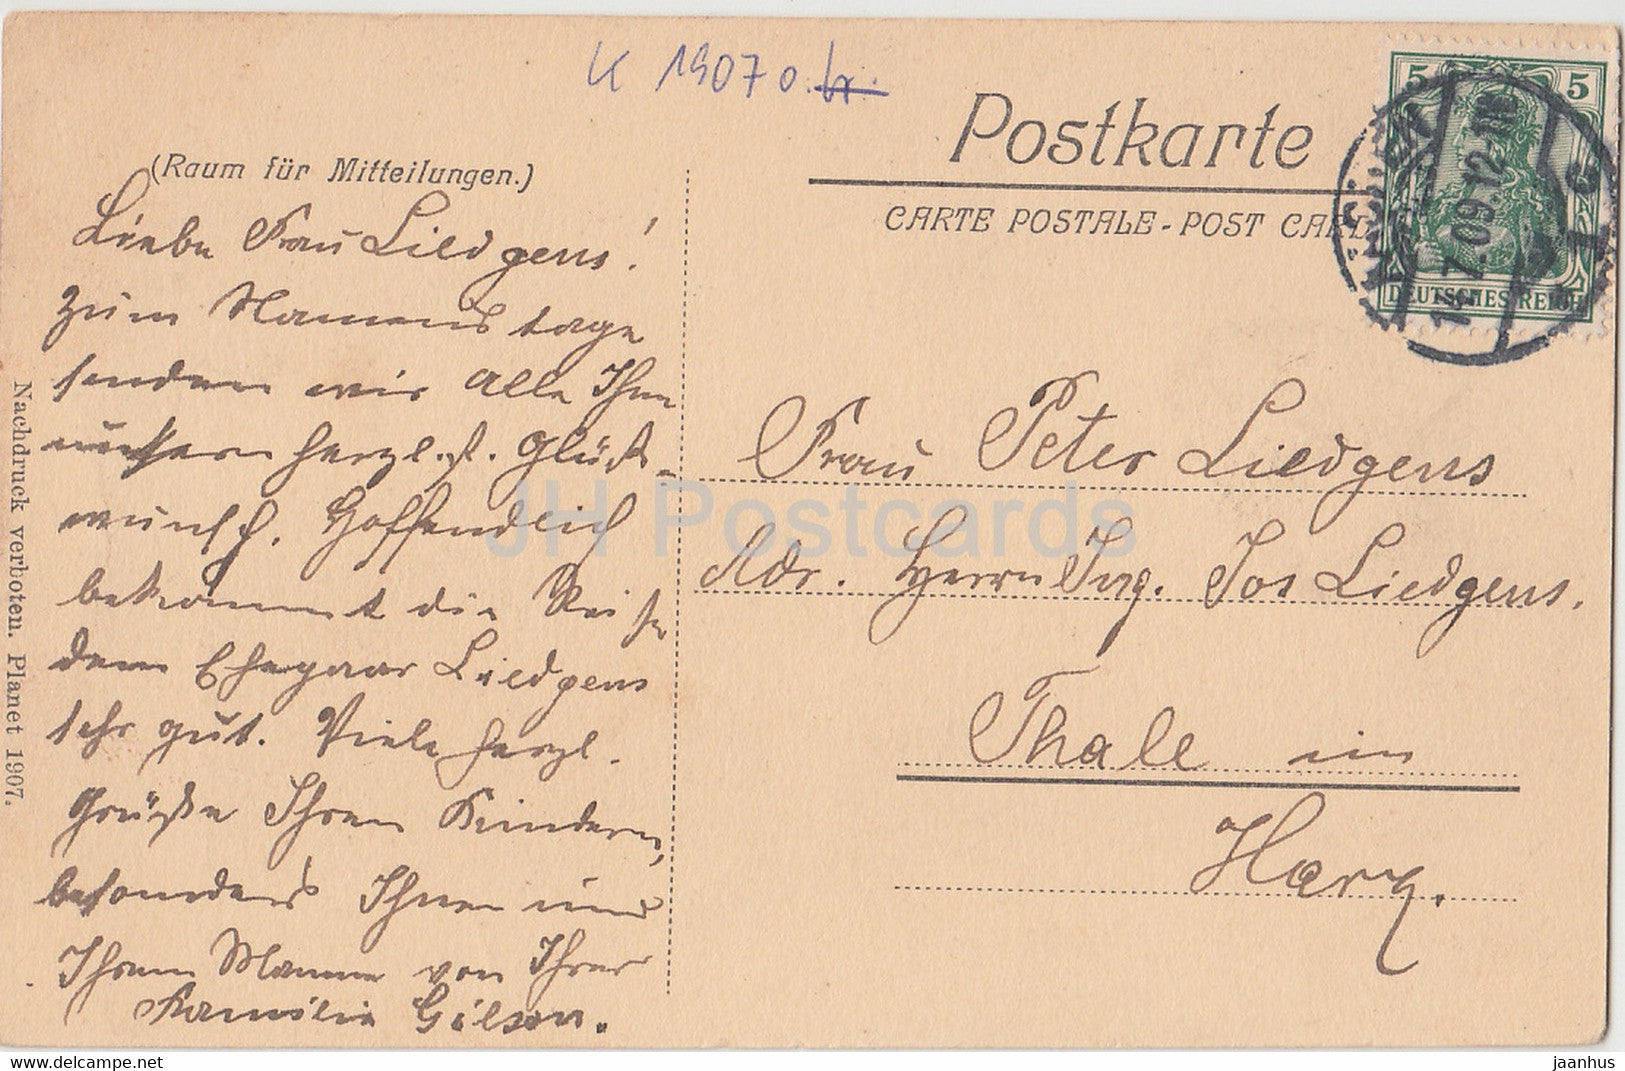 K 1907 o.
Postkarte
CARTE POSTALE - POST CARD
5 5
DEUTSCHES REICH
7.09.12-1
(Raum für Mitteilungen.)
Liebe Frau Liedgens!
Zum Namenstage
senden wir alle Ihnen
unsern herzl.st. Glück-
wunsch. Hoffendlich
bekommt die Reise
dem Ehepaar Liedgens
sehr gut. Viele herzl.
Grüße Ihren Kindern,
besonders Ihnen und
Ihrem Manne von Ihrer
Familie Gilson.
Frau Peter Liedgens
Adr. Herrn Ing. Jos Liedgens.
Thale im
Harz.
Nachdruck verboten. Planet 1907.
JH Postcards
delcampe.net
jaanhus